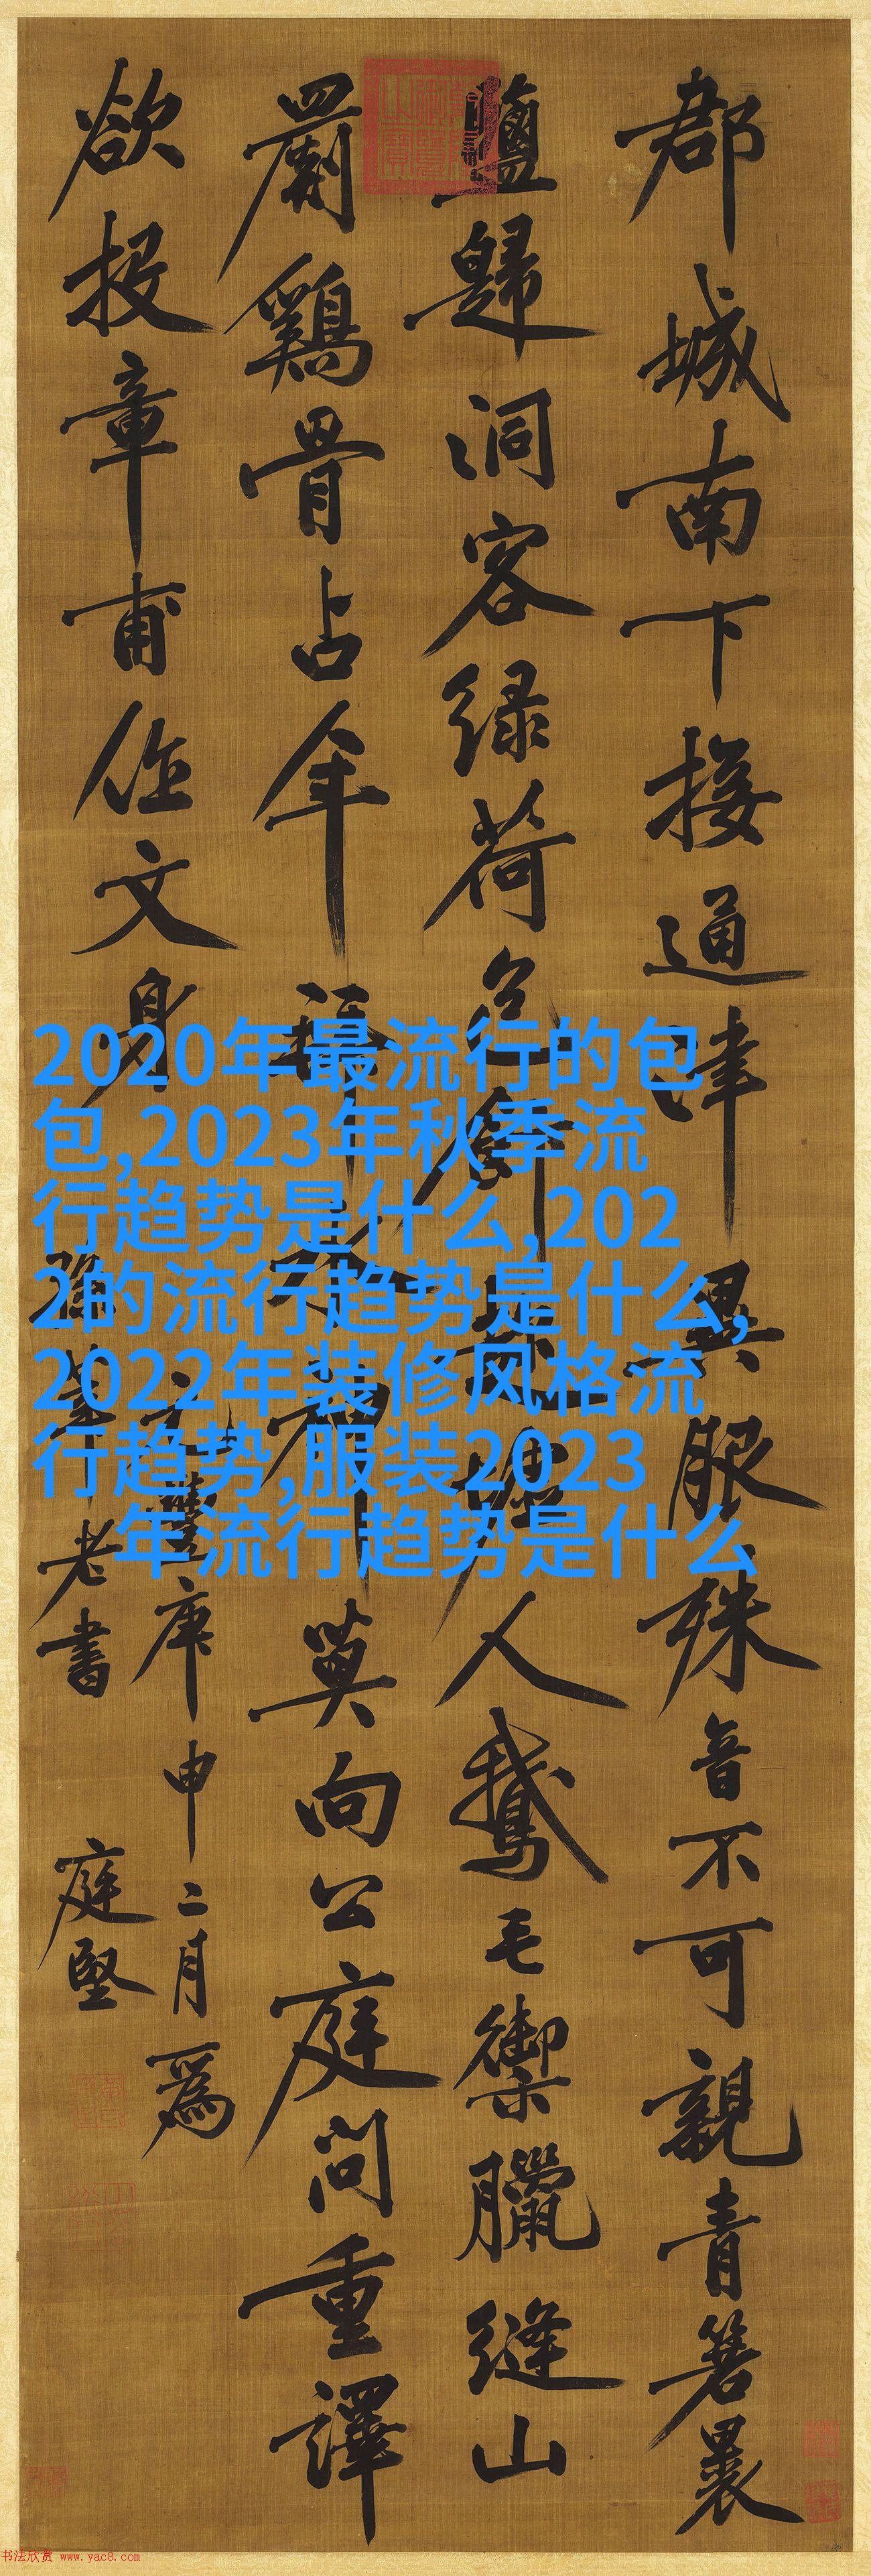 郡城南下接通津異服殊音不可親青箬裹
鹽歸洞客緑荷包人鵝毛禦臘縫山
罽鷄骨占年莫向公庭問重譯
欲投章甫作文身
庚申二月爲
莘老書
庭堅
2020年最流行的包
包,2023年秋季流
行趋势是什么,202
2的流行趋势是什么,
2022年装修风格流
行趋势,服装2023
年流行趋势是什么
书法欣赏 www.yac8.com